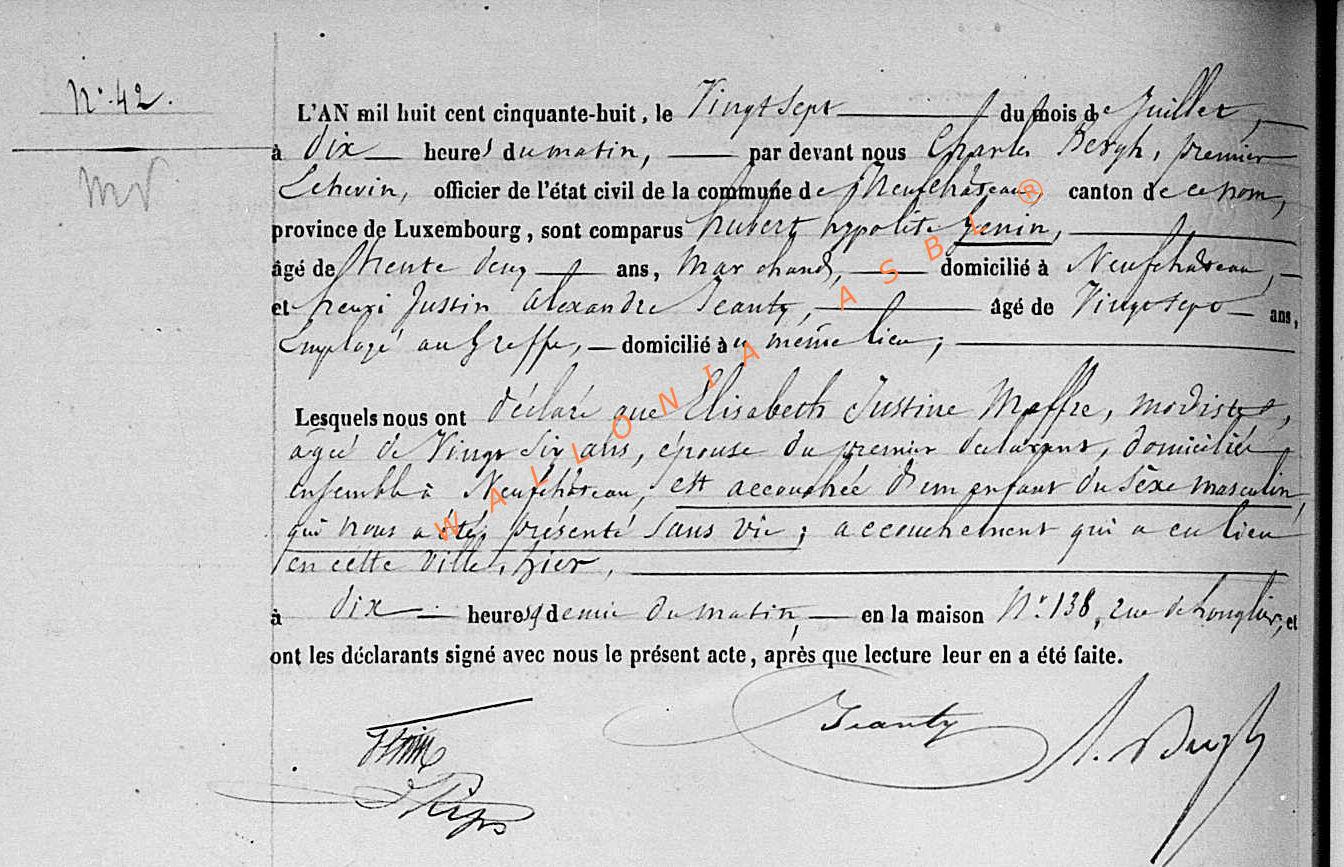 N° 42.
L'AN mil huit cent cinquante-huit, le Vingt Sept du mois de Juillet,
à dix heures du matin, par devant nous Charles Bergh, premier
Echevin, officier de l'état civil de la commune de Neufchâteau, canton de ce nom,
province de Luxembourg, sont comparus hubert hypolite Genin,
âgé de trente deux ans, Marchand, domicilié à Neufchâteau,
et henri Justin Alexandre Jeanty, âgé de Vingt sept ans,
Employé au Greffe, domicilié à même lieu;
Lesquels nous ont déclaré que Elisabeth Justine Maffre, modiste,
âgée de Vingt Six ans, épouse du premier déclarant, domiciliés
ensemble à Neufchâteau, est accouchée d'un enfant du sèxe masculin,
qui nous a été présenté sans vie; accouchement qui a eu lieu
en cette ville, hier,
à dix heures & demie du matin, en la maison N° 138, rue de Longlier, et
ont les déclarants signé avec nous le présent acte, après que lecture leur en a été faite.
Jeanty
WALLONIA ASBL ®